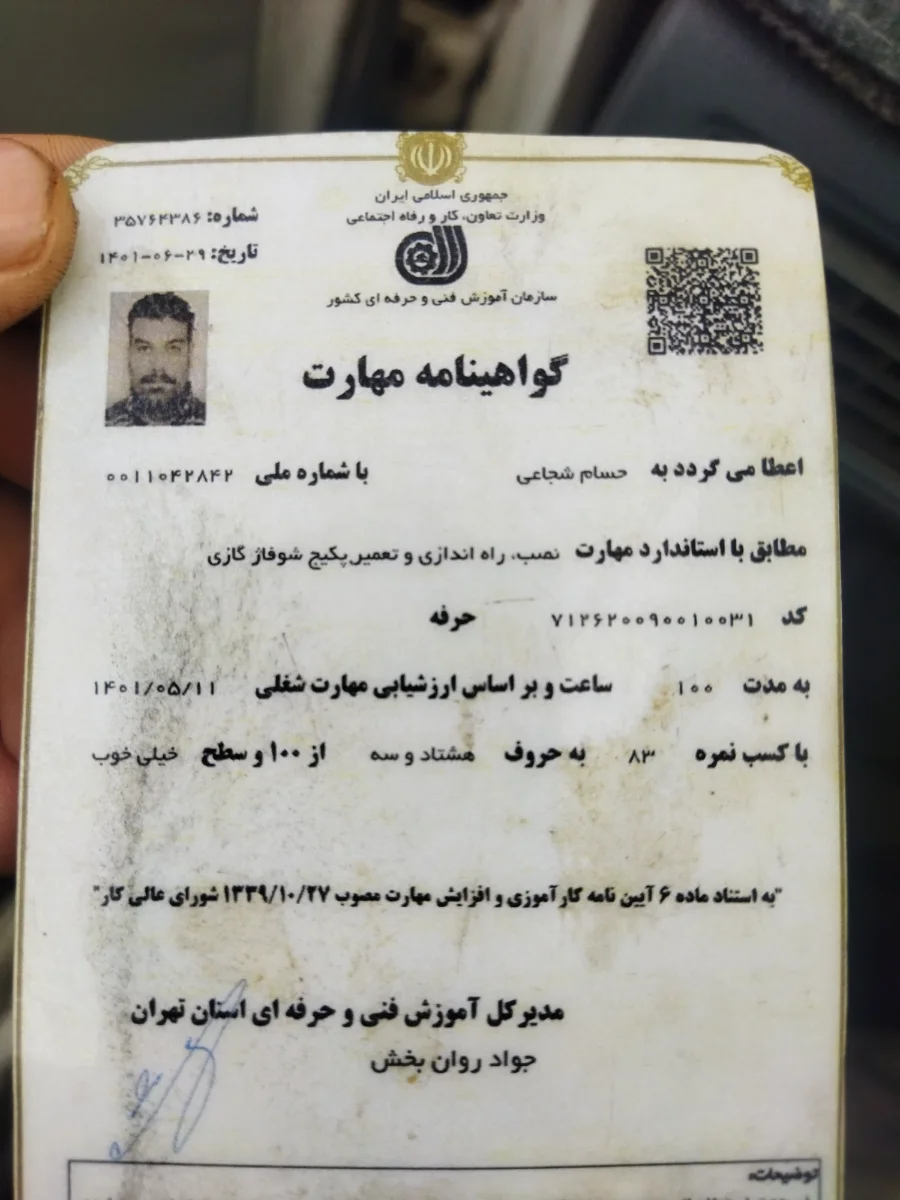 جمهوری اسلامی ایران
وزارت تعاون، کار و رفاه اجتماعی
سازمان آموزش فنی و حرفه ای کشور
شماره: ۳۵۷۶۴۳۸۶
تاریخ: ۱۴۰۱-۰۶-۲۹
گواهینامه مهارت
اعطا می گردد به حسام شجاعی با شماره ملی ۰۰۱۱۰۴۲۸۴۲
مطابق با استاندارد مهارت نصب، راه اندازی و تعمیر پکیج شوفاژ گازی
کد ۷۱۲۶۲۰۰۹۰۰۱۰۰۳۱ حرفه
به مدت ۱۰۰ ساعت و بر اساس ارزشیابی مهارت شغلی ۱۴۰۱/۰۵/۱۱
با کسب نمره ۸۳ به حروف هشتاد و سه از ۱۰۰ و سطح خیلی خوب
"به استناد ماده ۶ آیین نامه کارآموزی و افزایش مهارت مصوب ۱۳۳۹/۱۰/۲۷ شورای عالی کار"
مدیرکل آموزش فنی و حرفه ای استان تهران
جواد روان بخش
توضیحات: